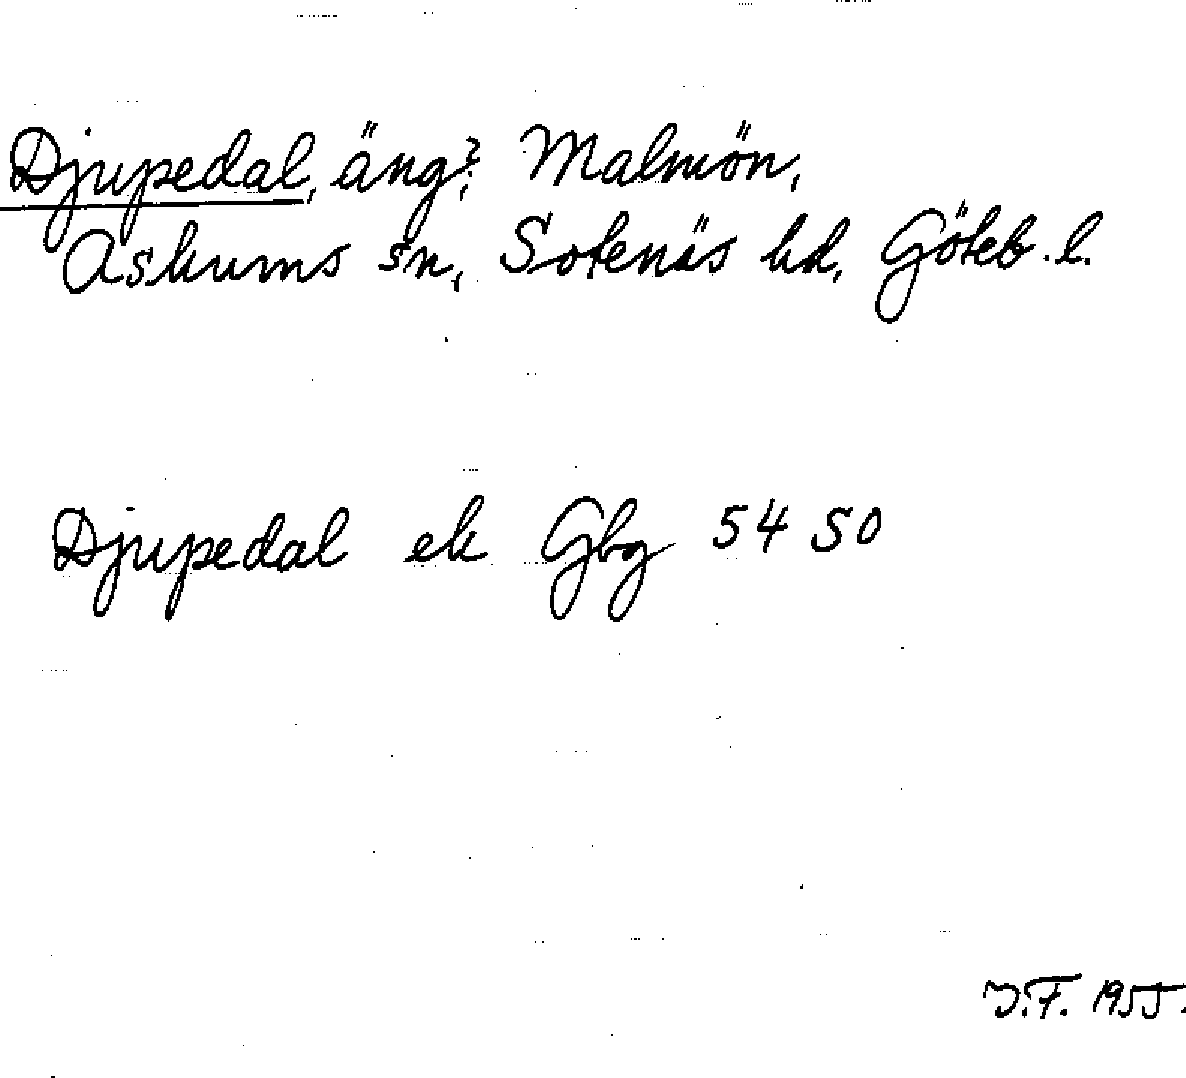 Djupedal, äng?, Malmön,
Askums sn, Sotenäs hd, Göteb. l.
Djupedal ek Gbg 54 50
J.F. 1955.